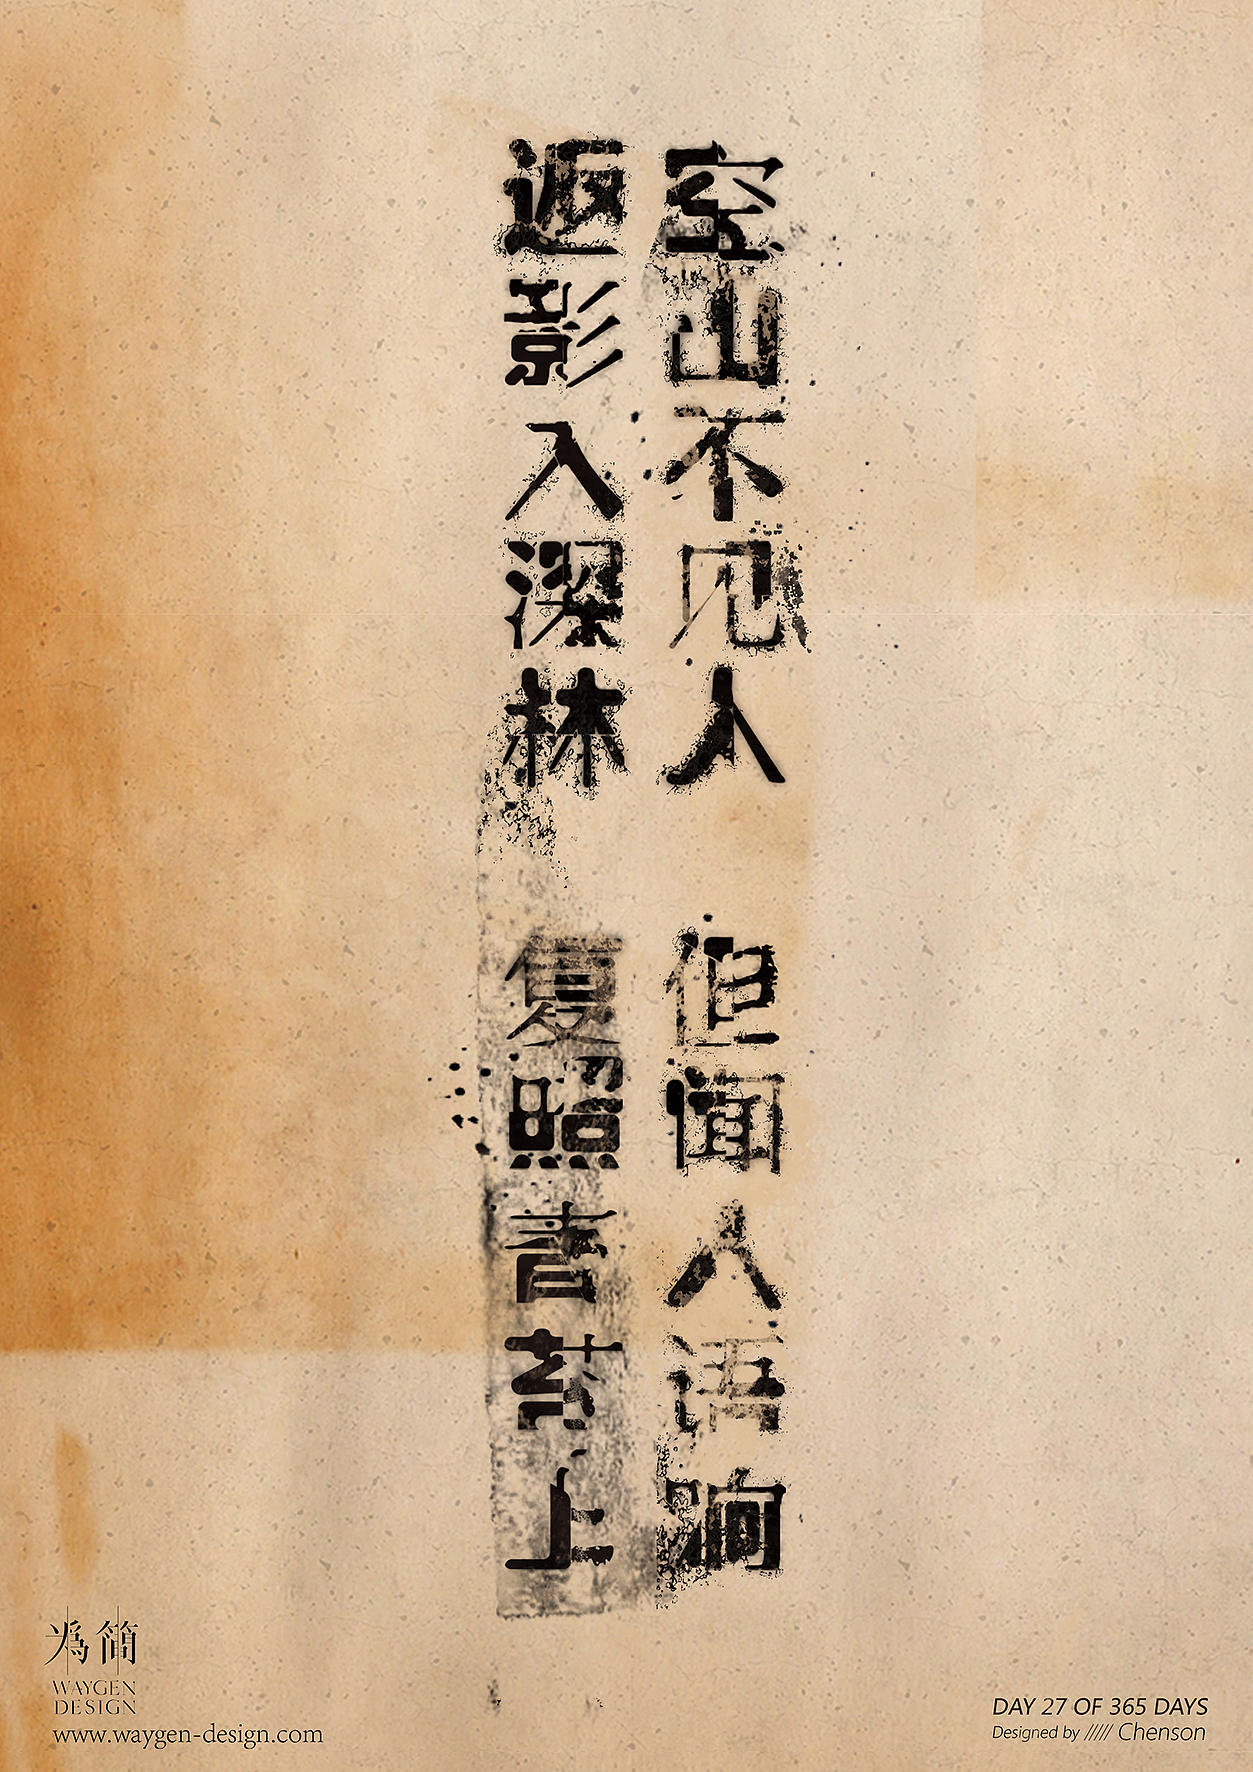 空山不见人
但闻人语响
返影入深林
复照青苔上
為简
WAYGEN
DESIGN
www.waygen-design.com
DAY 27 OF 365 DAYS
Designed by ///// Chenson